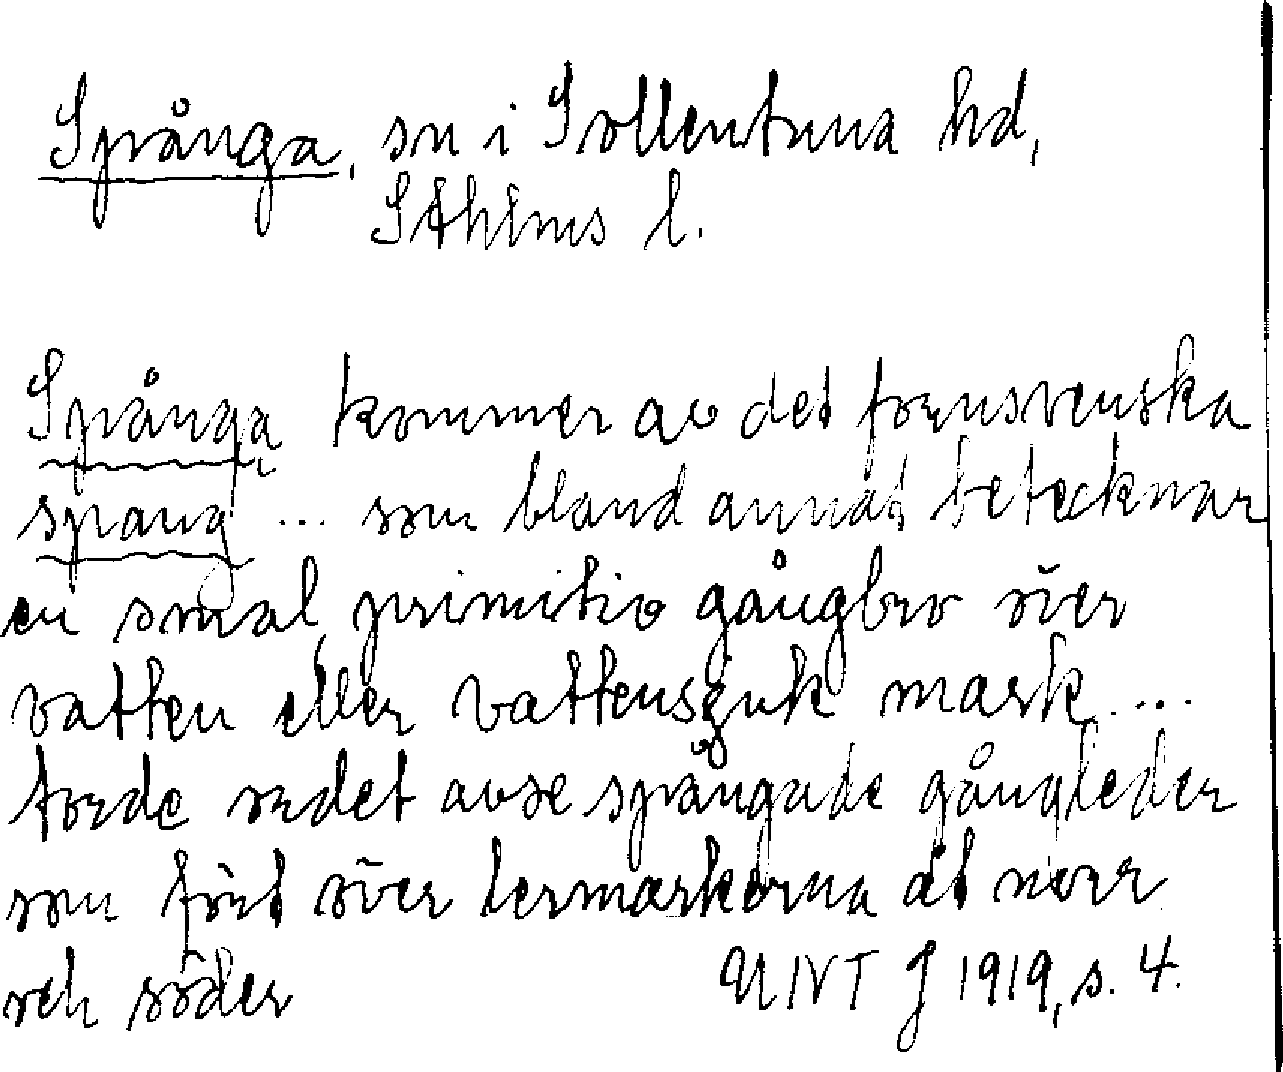 Spånga, sn i Sollentuna hd,
Sthlms l.
Spånga kommer av det fornsvenska
spang ... som bland annat betecknar
en smal, primitiv gångbro över
vatten eller vattensjuk mark....
torde ordet avse spångade gångleder
som fört över lermarkerna åt norr
och söder
UNT J 1919, s. 4.